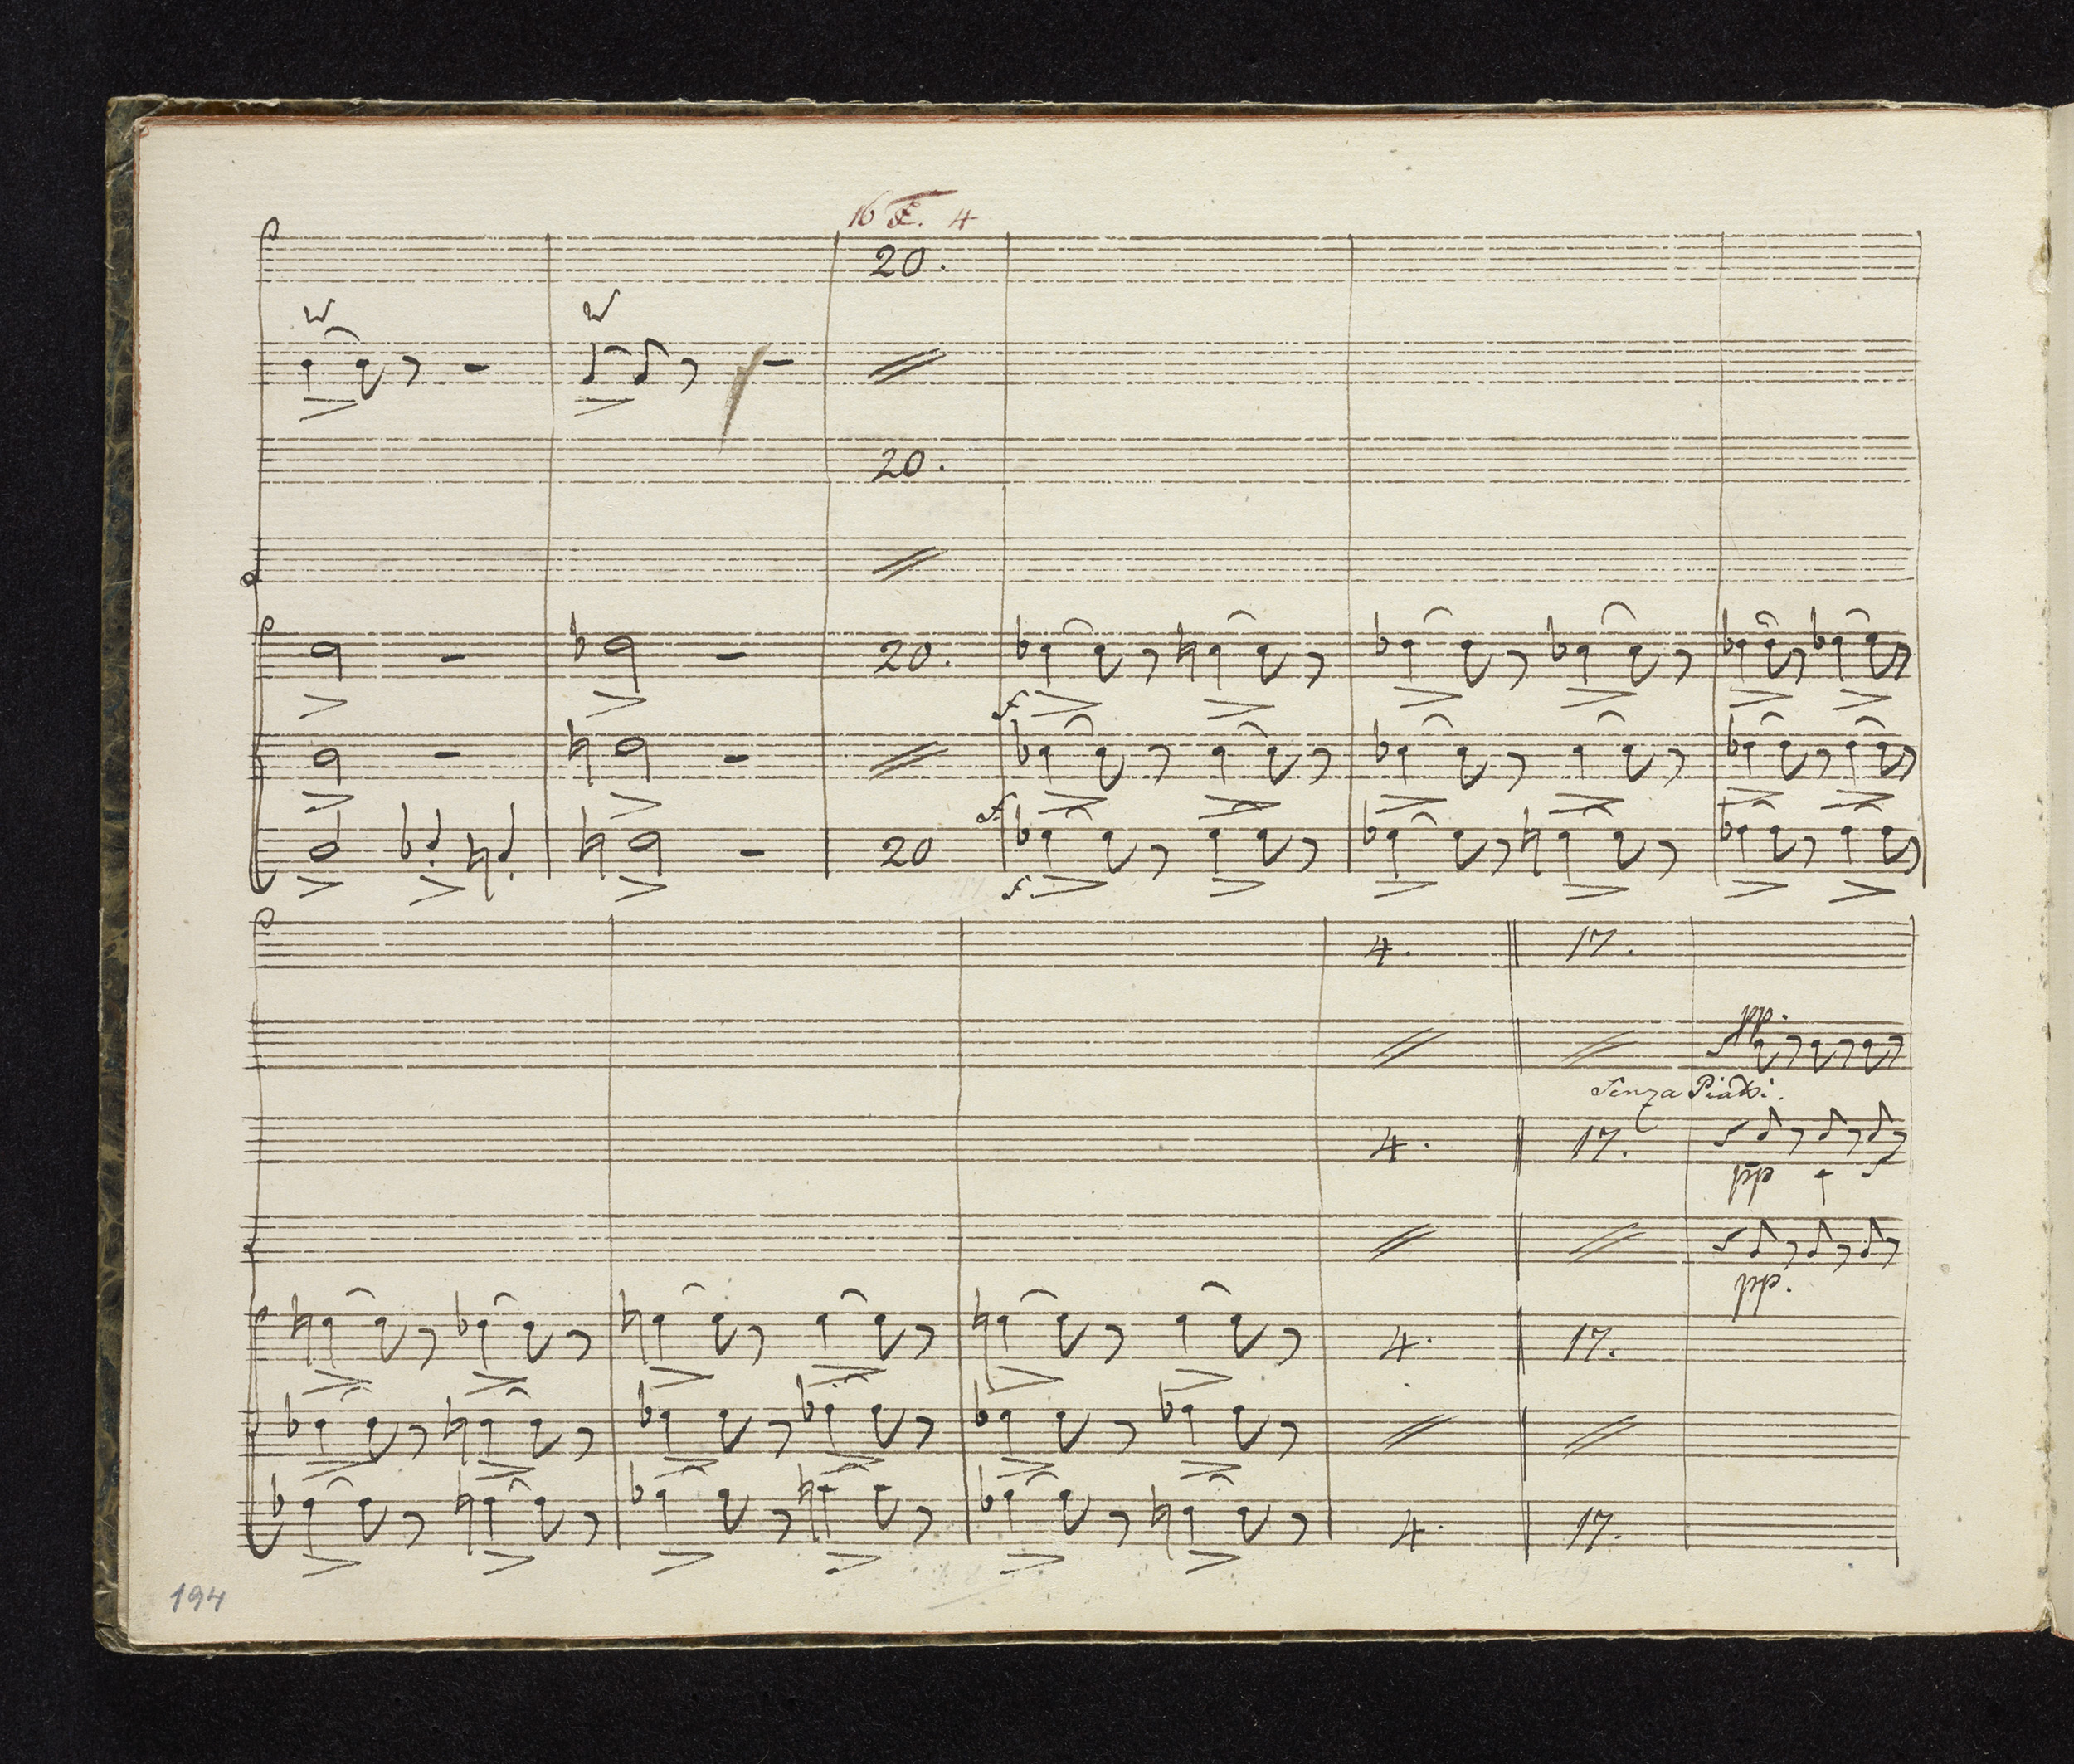 16 4
20.
20.
20.
f
f.
20
f.
4. 17.
pp.
Senza Piatti.
4. 17.
pp
pp.
4. 17.
4. 17.
194